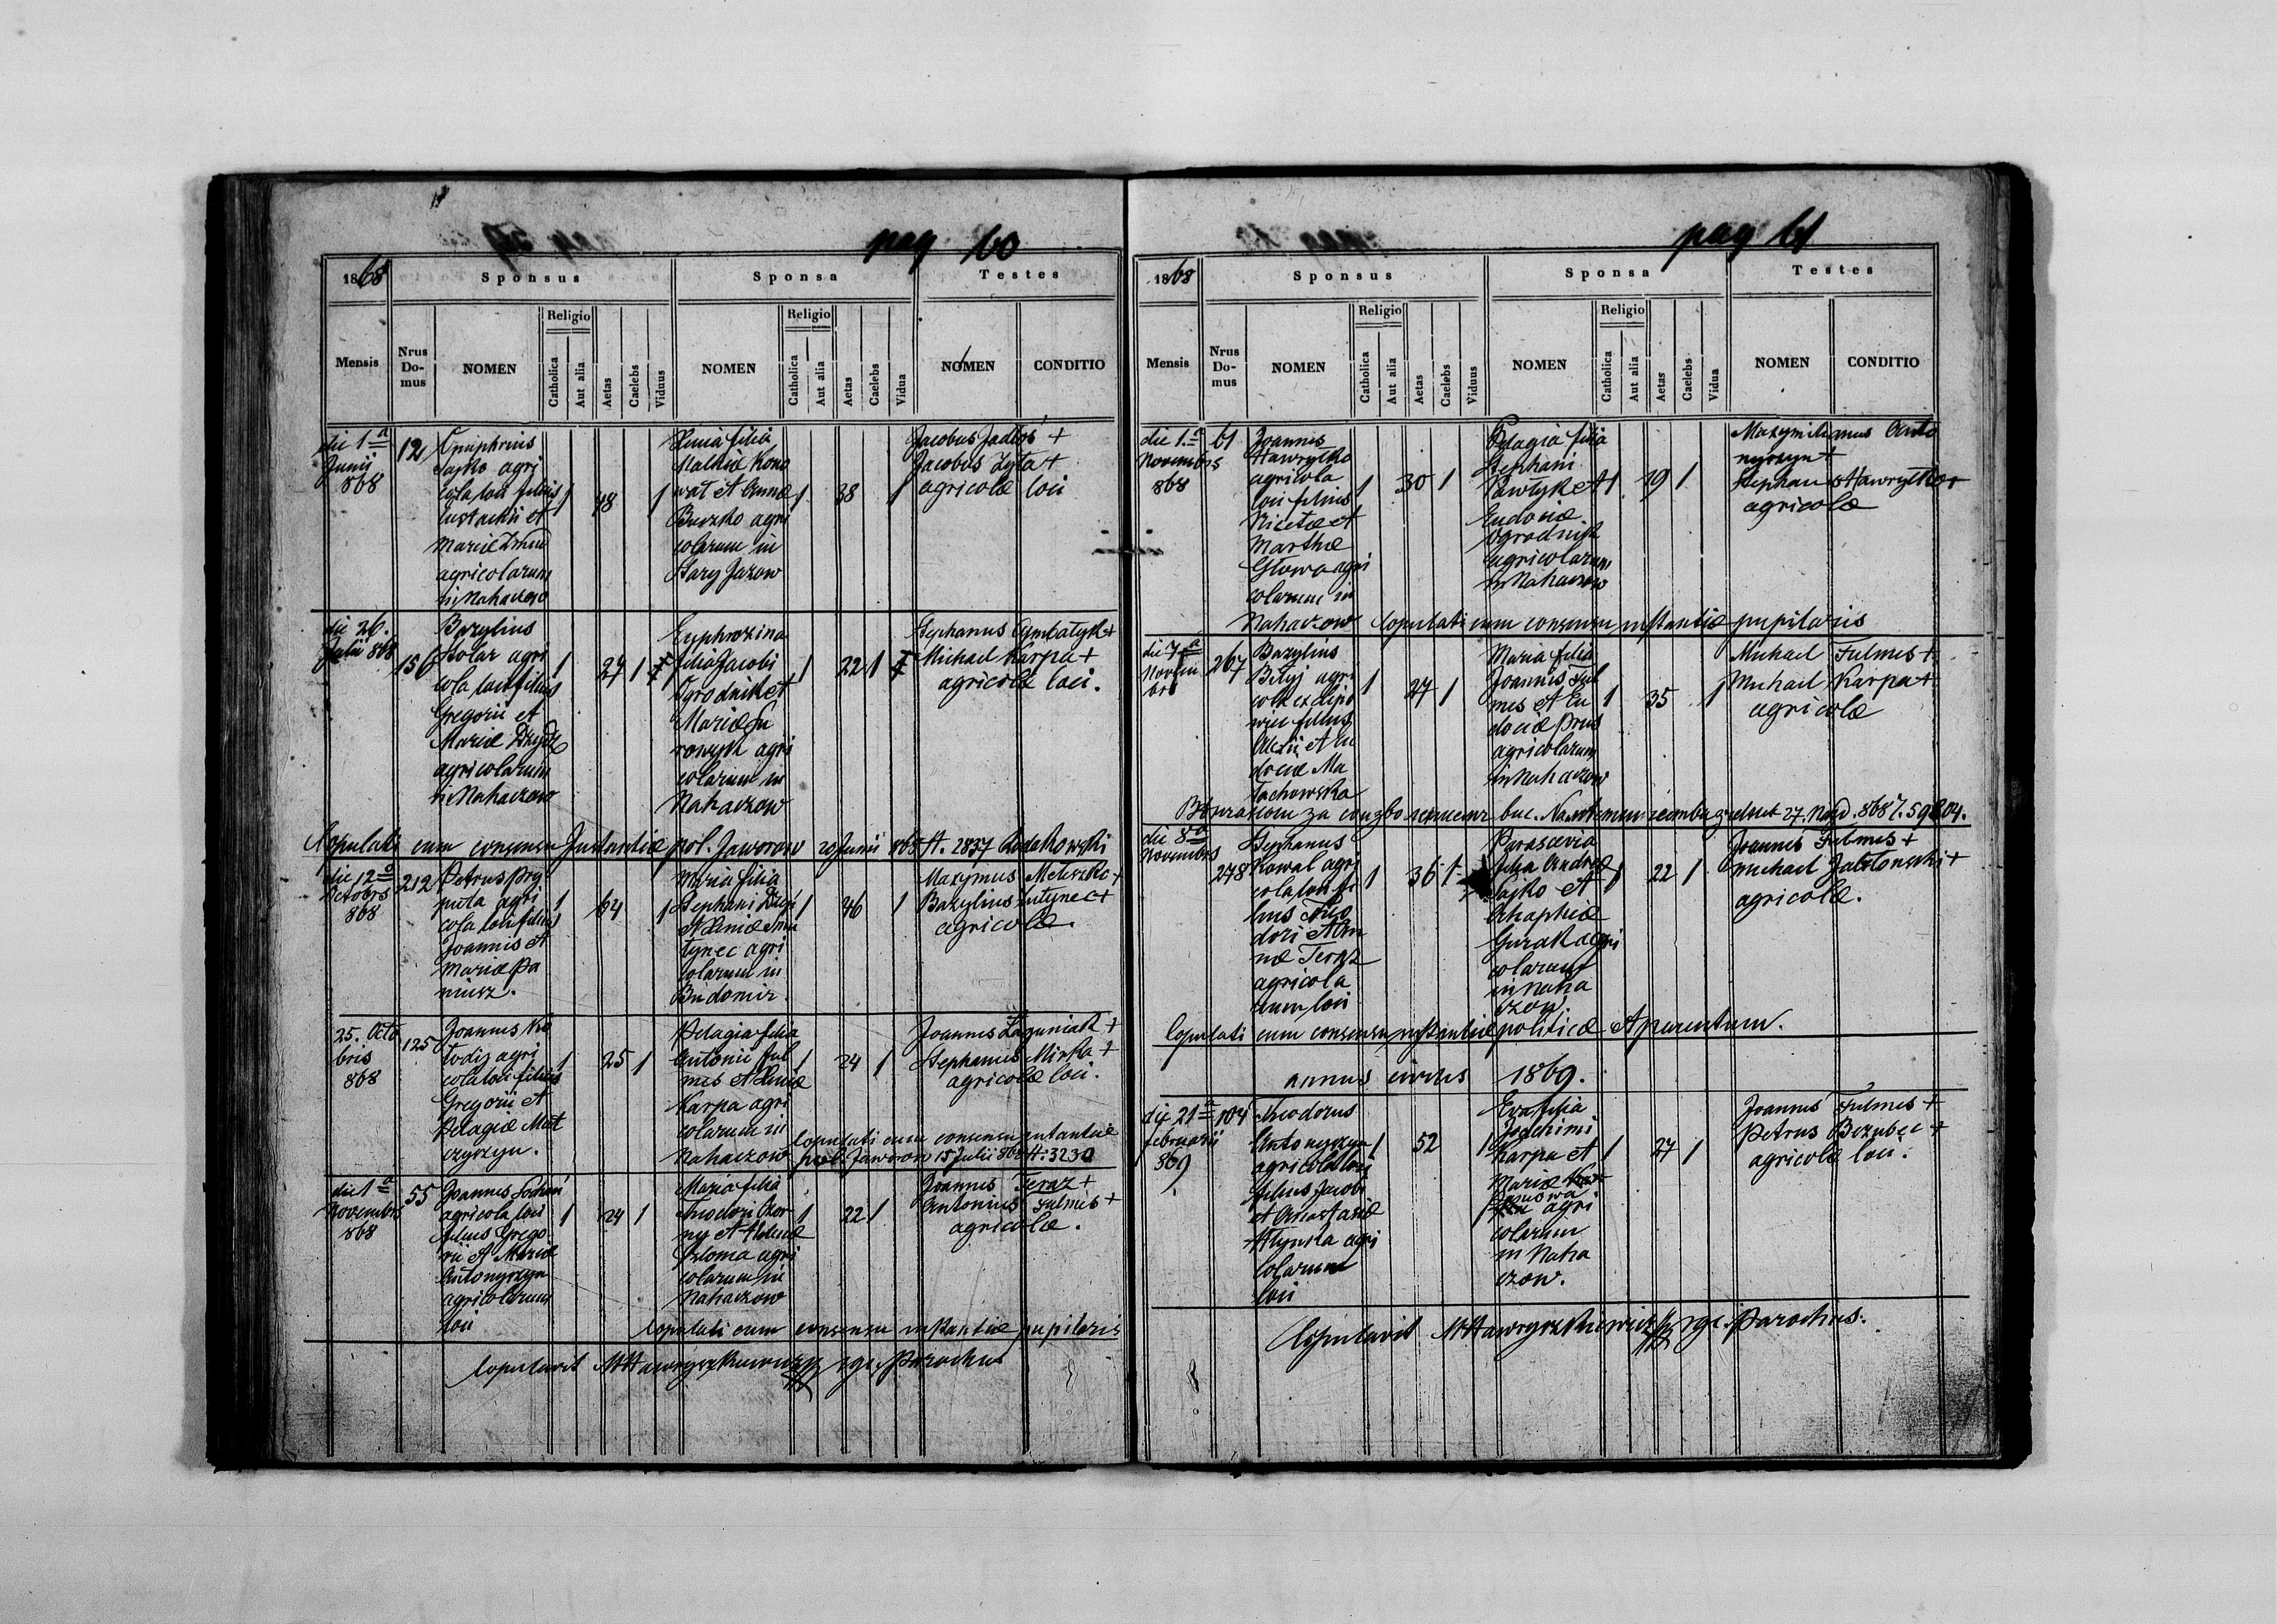 pag 60
1868
Sponsus
Sponsa
Testes
Mensis
Nrus Domus
NOMEN
Religio
Catholica
Aut alia
Aetas
Caelebs
Viduus
NOMEN
Religio
Catholica
Aut alia
Aetas
Caelebs
Vidua
NOMEN
CONDITIO
die 1a
Junii
868
12
Onuphrius
Sajko agri
cola loci filius
Eustachii et
Mariæ
agricolarum
in Nahaczow
1
48
1
Xenia filia
Mathiæ Kono
wat et Annæ
Buczko agri
colarum in
Stary Jazow
1
38
1
Jacobus Jadłoś +
Jacobus Zyła +
agricolæ loci
die 26.
Julii 868
156
Bazylius
Stolar agri
cola loci filius
Gregorii et
Mariæ
agricolarum
in Nahaczow
1
27
1
Euphrozina
filia Jacobi
Ogrodnik et
Mariæ Su
rowyk agri
colarum in
Nahaczow
1
22
1
Stephanus Cymbałyk +
Michael Karpa +
agricolæ loci.
Copulati cum consensu Instantiæ pol. Jaworow 20 Junii 868 N. 2837
die 12a
Octobrs
868
212
Petrus Pry
puta agri
cola loci filius
Joannis et
Mariæ Pa
niusz.
1
64
1
Maria filia
Stephani
et Xeniæ Smu
tynec agri
colarum in
Budomir.
1
46
1
Maxymus Meleszko +
Bazylius Lutynec +
agricolæ.
25. Octo
bris
868
125
Joannes Ko
lodij agri
cola loci filius
Gregorii et
Pelagiæ Mat
czyszyn.
1
25
1
Pelagia filia
Antonii Ful
mes et Xeniæ
Karpa agri
colarum in
Nahaczow
1
24
1
Joannes Łaguniak +
Stephanus Mirka +
agricolæ loci.
Copulati cum consensu intantiæ
pol. Jaworow 15 Julii 868 N: 3230
die 1a
Novembrs
868
55
Joannes
agricola loci
filius Grego
rii et Mariæ
Antonyszyn
agricolarum
loci
1
24
1
Maria filia
Theodori Czor
ny et Helenæ
Szloma agri
colarum in
Nahaczow
1
22
1
Joannes Teraz +
Antonius Fulmes +
agricolæ.
Copulati cum consensu instantiæ pupilaris
Copulavit M Hawryszkiewicz Parochus
pag 61
1868
Sponsus
Sponsa
Testes
Mensis
Nrus Domus
NOMEN
Religio
Catholica
Aut alia
Aetas
Caelebs
Viduus
NOMEN
Religio
Catholica
Aut alia
Aetas
Caelebs
Vidua
NOMEN
CONDITIO
die 1.a
Novembrs
868
61
Joannes
Hawryłko
agricola
loci filius
Nicetæ et
Marthæ
Głowa agri
colarum in
Nahaczow
1
30
1
Pelagia filia
Stephani
Pawłyk et
Eudociæ
Ogrodnik
agricolarum
in Nahaczow
1
19
1
Maxymilianus Anto
nyszyn +
Stephan Hawryłko +
agricolæ
Copulati cum consensu instantiæ pupilaris
die 7a
Novem
bri
267
Bazylius
Biłyj agri
cola ex Lipo
wiec filius
Alexii et Eu
dociæ Ma
łachowska
1
27
1
Maria filia
Joannis Ful
mes et Eu
dociæ Prus
agricolarum
in Nahaczow
1
35
1
Michael Fulmes +
Michael Karpa +
agricolæ
die 8a
Novembrs
278
Stephanus
Kowal agri
cola loci fi
lius Theo
dori et An
næ Teraz
agricola
rum loci
1
36
1
Parascevia
filia Andreæ
Sajko et
Ahaphiæ
Gurak agri
colarum
in Naha
czow.
1
22
1
Joannes Fulmes +
Michael Jabłonski +
agricolæ.
Copulati cum consensu instantiæ politicæ et parentum.
annus currens 1869.
die 21a
februarii
869
104
Theodorus
Antonyszyn
agricola loci
filius Jacobi
et Anastasiæ
Hlynka agri
colarum
loci
1
52
1
Eva filia
Joachimi
Karpa et
Mariæ
agri
colarum
in Naha
czow.
1
27
1
Joannes Fulmes +
Petrus Bezubec +
agricolæ loci.
Copulavit M Hawryszkiewicz Parochus.